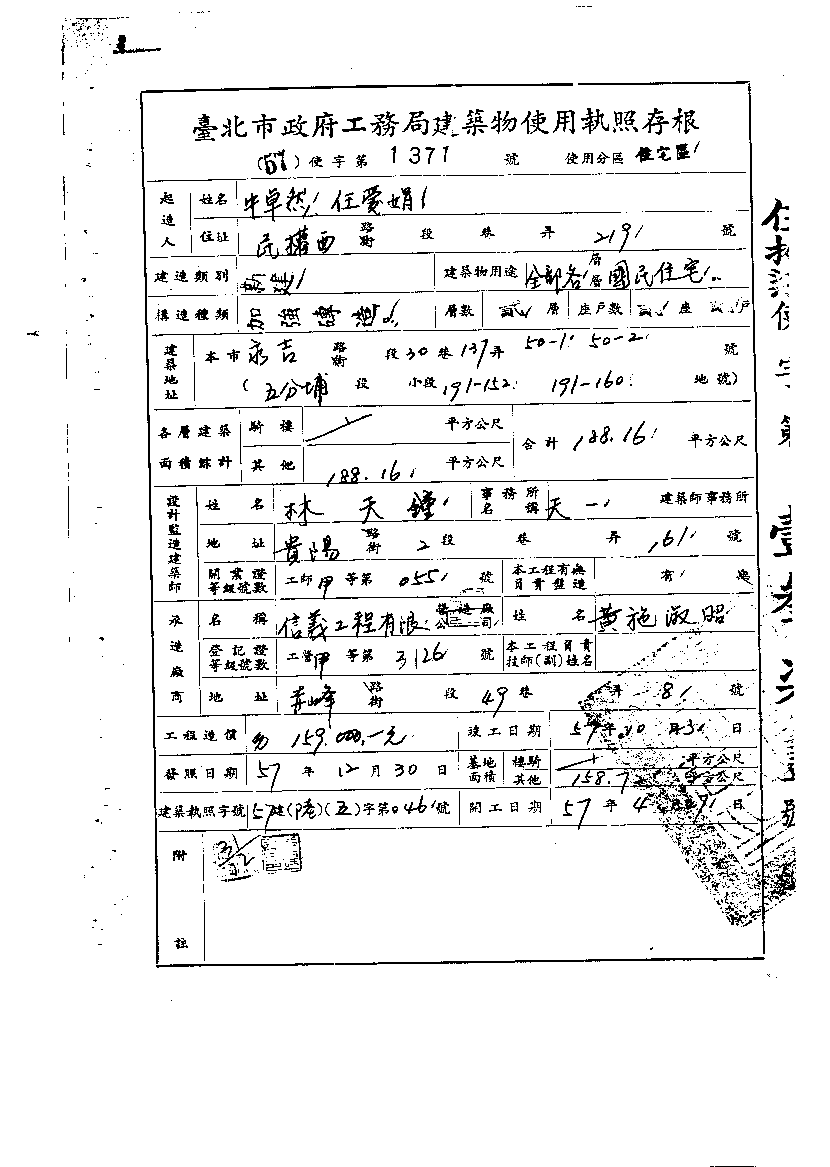 臺北市政府工務局建築物使用執照存根
(57)使字第 1371 號 使用分區 住宅區
起造人 姓名 牛卓然 任愛娟
住址 民權西 路街 段 巷 弄 219 號
建造類別 新建 建築物用途 全部各層層國民住宅
構造種類 加強磚造 層數 貳 層 座戶數 座 戶
建築地址 本市 永吉 路街 段 30 巷 137 弄 50-1 50-2 號
(五分埔 段 小段 191-152 191-160 地號)
各層建築面積綜計 騎樓 平方公尺 合計 188.16 平方公尺
其他 188.16 平方公尺
設計監造建築師 姓名 林天鐘 事務所名稱 天一 建築師事務所
地址 貴陽 路街 2 段 巷 弄 61 號
開業證等級號數 工師甲等第 055 號 本工程有無負責監造 有 無
承造廠商 名稱 信義工程有限 營造廠公司 姓名 黃施淑昭
登記證等級號數 工營甲等第 3126 號 本工程負責技師(副)姓名
地址 赤峰 路街 段 49 巷 弄 8 號
工程造價 159,000.-元 竣工日期 57 年 10 月 31 日
發照日期 57 年 12 月 30 日 基地面積 樓騎 平方公尺
其他 158.7 平方公尺
建築執照字號 57建( )(五)字第046號 開工日期 57 年 4 月 日
附註